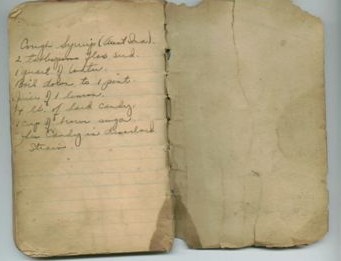 Cough Syrup (Aunt Ina).
2 tablespoons flax seed.
1 quart of water.
Boil down to 1 pint.
juice of 1 lemon.
1/4 lb. of hard candy.
1 cup of brown sugar.
Candy in
Strain